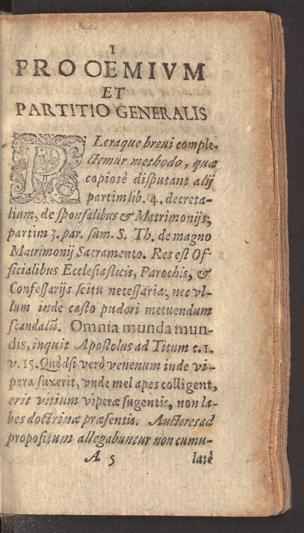 I
PROOEMIVM
ET
PARTITIO GENERALIS
PLeraque breui comple-
ctemur methodo, quæ
copiosè disputant alij
partim lib. 4. decreta-
lium, de sponsalibus & Matrimonijs,
partim 3. par. sum. S. Th. de magno
Matrimonij Sacramento. Res est Of-
ficialibus Ecclesiasticis, Parochis, &
Confessarijs scitu necessaria, nec vl-
lum inde casto pudori metuendum
scandalũ. Omnia munda mun-
dis, inquit Apostolus ad Titum c.1.
v.15. Quòdsi verò venenum inde vi-
pera suxerit, vnde mel apes colligent,
erit vitium viperæ sugentis, non la-
bes doctrinæ præsentis. Auctores ad
propositum allegabuntur non cumu-
A 5 latè